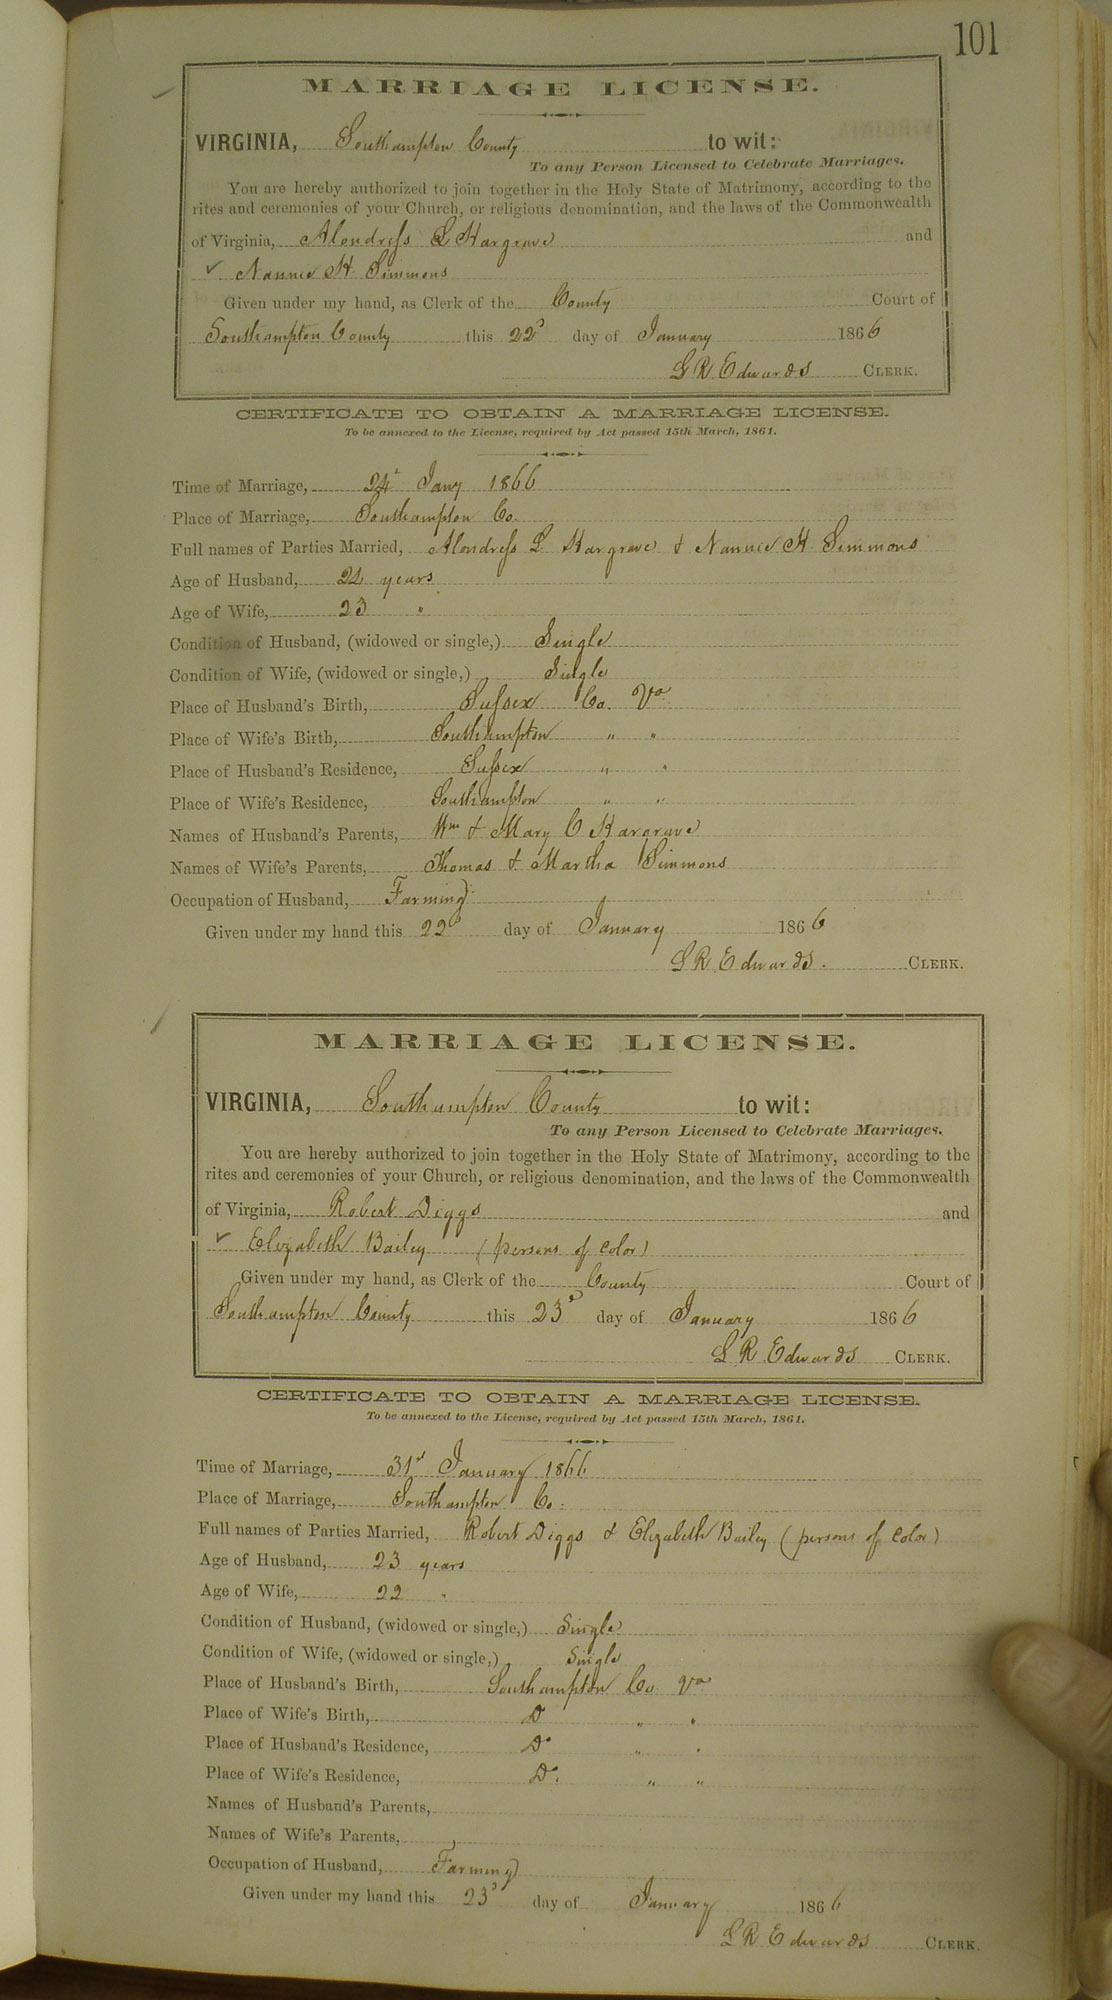 101
MARRIAGE LICENSE.
VIRGINIA, Southampton County to wit:
To any Person Licensed to Celebrate Marriages.
You are hereby authorized to join together in the Holy State of Matrimony, according to the
rites and ceremonies of your Church, or religious denomination, and the laws of the Commonwealth
of Virginia, Alondress L Hargrave and
Nannie H Simmons
Given under my hand, as Clerk of the County Court of
Southampton County this 22d day of January 1866
L R Edwards CLERK.
CERTIFICATE TO OBTAIN A MARRIAGE LICENSE.
To be annexed to the License, required by Act passed 15th March, 1861.
Time of Marriage, 24th Jany 1866
Place of Marriage, Southampton Co.
Full names of Parties Married, Alondress L Hargrave & Nannie H Simmons
Age of Husband, years
Age of Wife, 23 "
Condition of Husband, (widowed or single,) Single
Condition of Wife, (widowed or single,) Single
Place of Husband's Birth, Sussex Co. Va
Place of Wife's Birth, Southampton " "
Place of Husband's Residence, Sussex " "
Place of Wife's Residence, Southampton " "
Names of Husband's Parents, Wm & Mary C Hargrave
Names of Wife's Parents, Thomas & Martha Simmons
Occupation of Husband, Farming
Given under my hand this 22d day of January 1866
L R Edwards. CLERK.
MARRIAGE LICENSE.
VIRGINIA, Southampton County to wit:
To any Person Licensed to Celebrate Marriages.
You are hereby authorized to join together in the Holy State of Matrimony, according to the
rites and ceremonies of your Church, or religious denomination, and the laws of the Commonwealth
of Virginia, Robert Diggs and
Elizabeth Bailey (persons of color)
Given under my hand, as Clerk of the County Court of
Southampton County this 23d day of January 1866
L R Edwards CLERK.
CERTIFICATE TO OBTAIN A MARRIAGE LICENSE.
To be annexed to the License, required by Act passed 15th March, 1861.
Time of Marriage, 31st January 1866
Place of Marriage, Southampton Co.
Full names of Parties Married, Robert Diggs & Elizabeth Bailey (persons of color)
Age of Husband, 23 years
Age of Wife, 22 "
Condition of Husband, (widowed or single,) Single
Condition of Wife, (widowed or single,) Single
Place of Husband's Birth, Southampton Co Va
Place of Wife's Birth, Do " "
Place of Husband's Residence, Do " "
Place of Wife's Residence, Do. " "
Names of Husband's Parents,
Names of Wife's Parents,
Occupation of Husband, Farming
Given under my hand this 23d day of January 1866
L R Edwards CLERK.